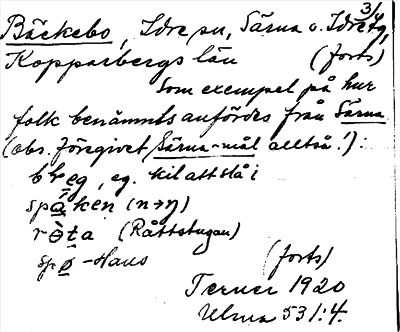 3/4
Bäckebo, Idre sn, Särna o. Idre tg,
Kopparbergs län (forts)
Som exempel på hur
folk benämnts anfördes från Särna
(obs. föregivet Särna-mål alltså!):
breg, eg. kil att slå i
spåken (n→ŋ)
röta (Råttstugan)
spö-Hans (forts)
Terner 1920
Ulma 531:4.